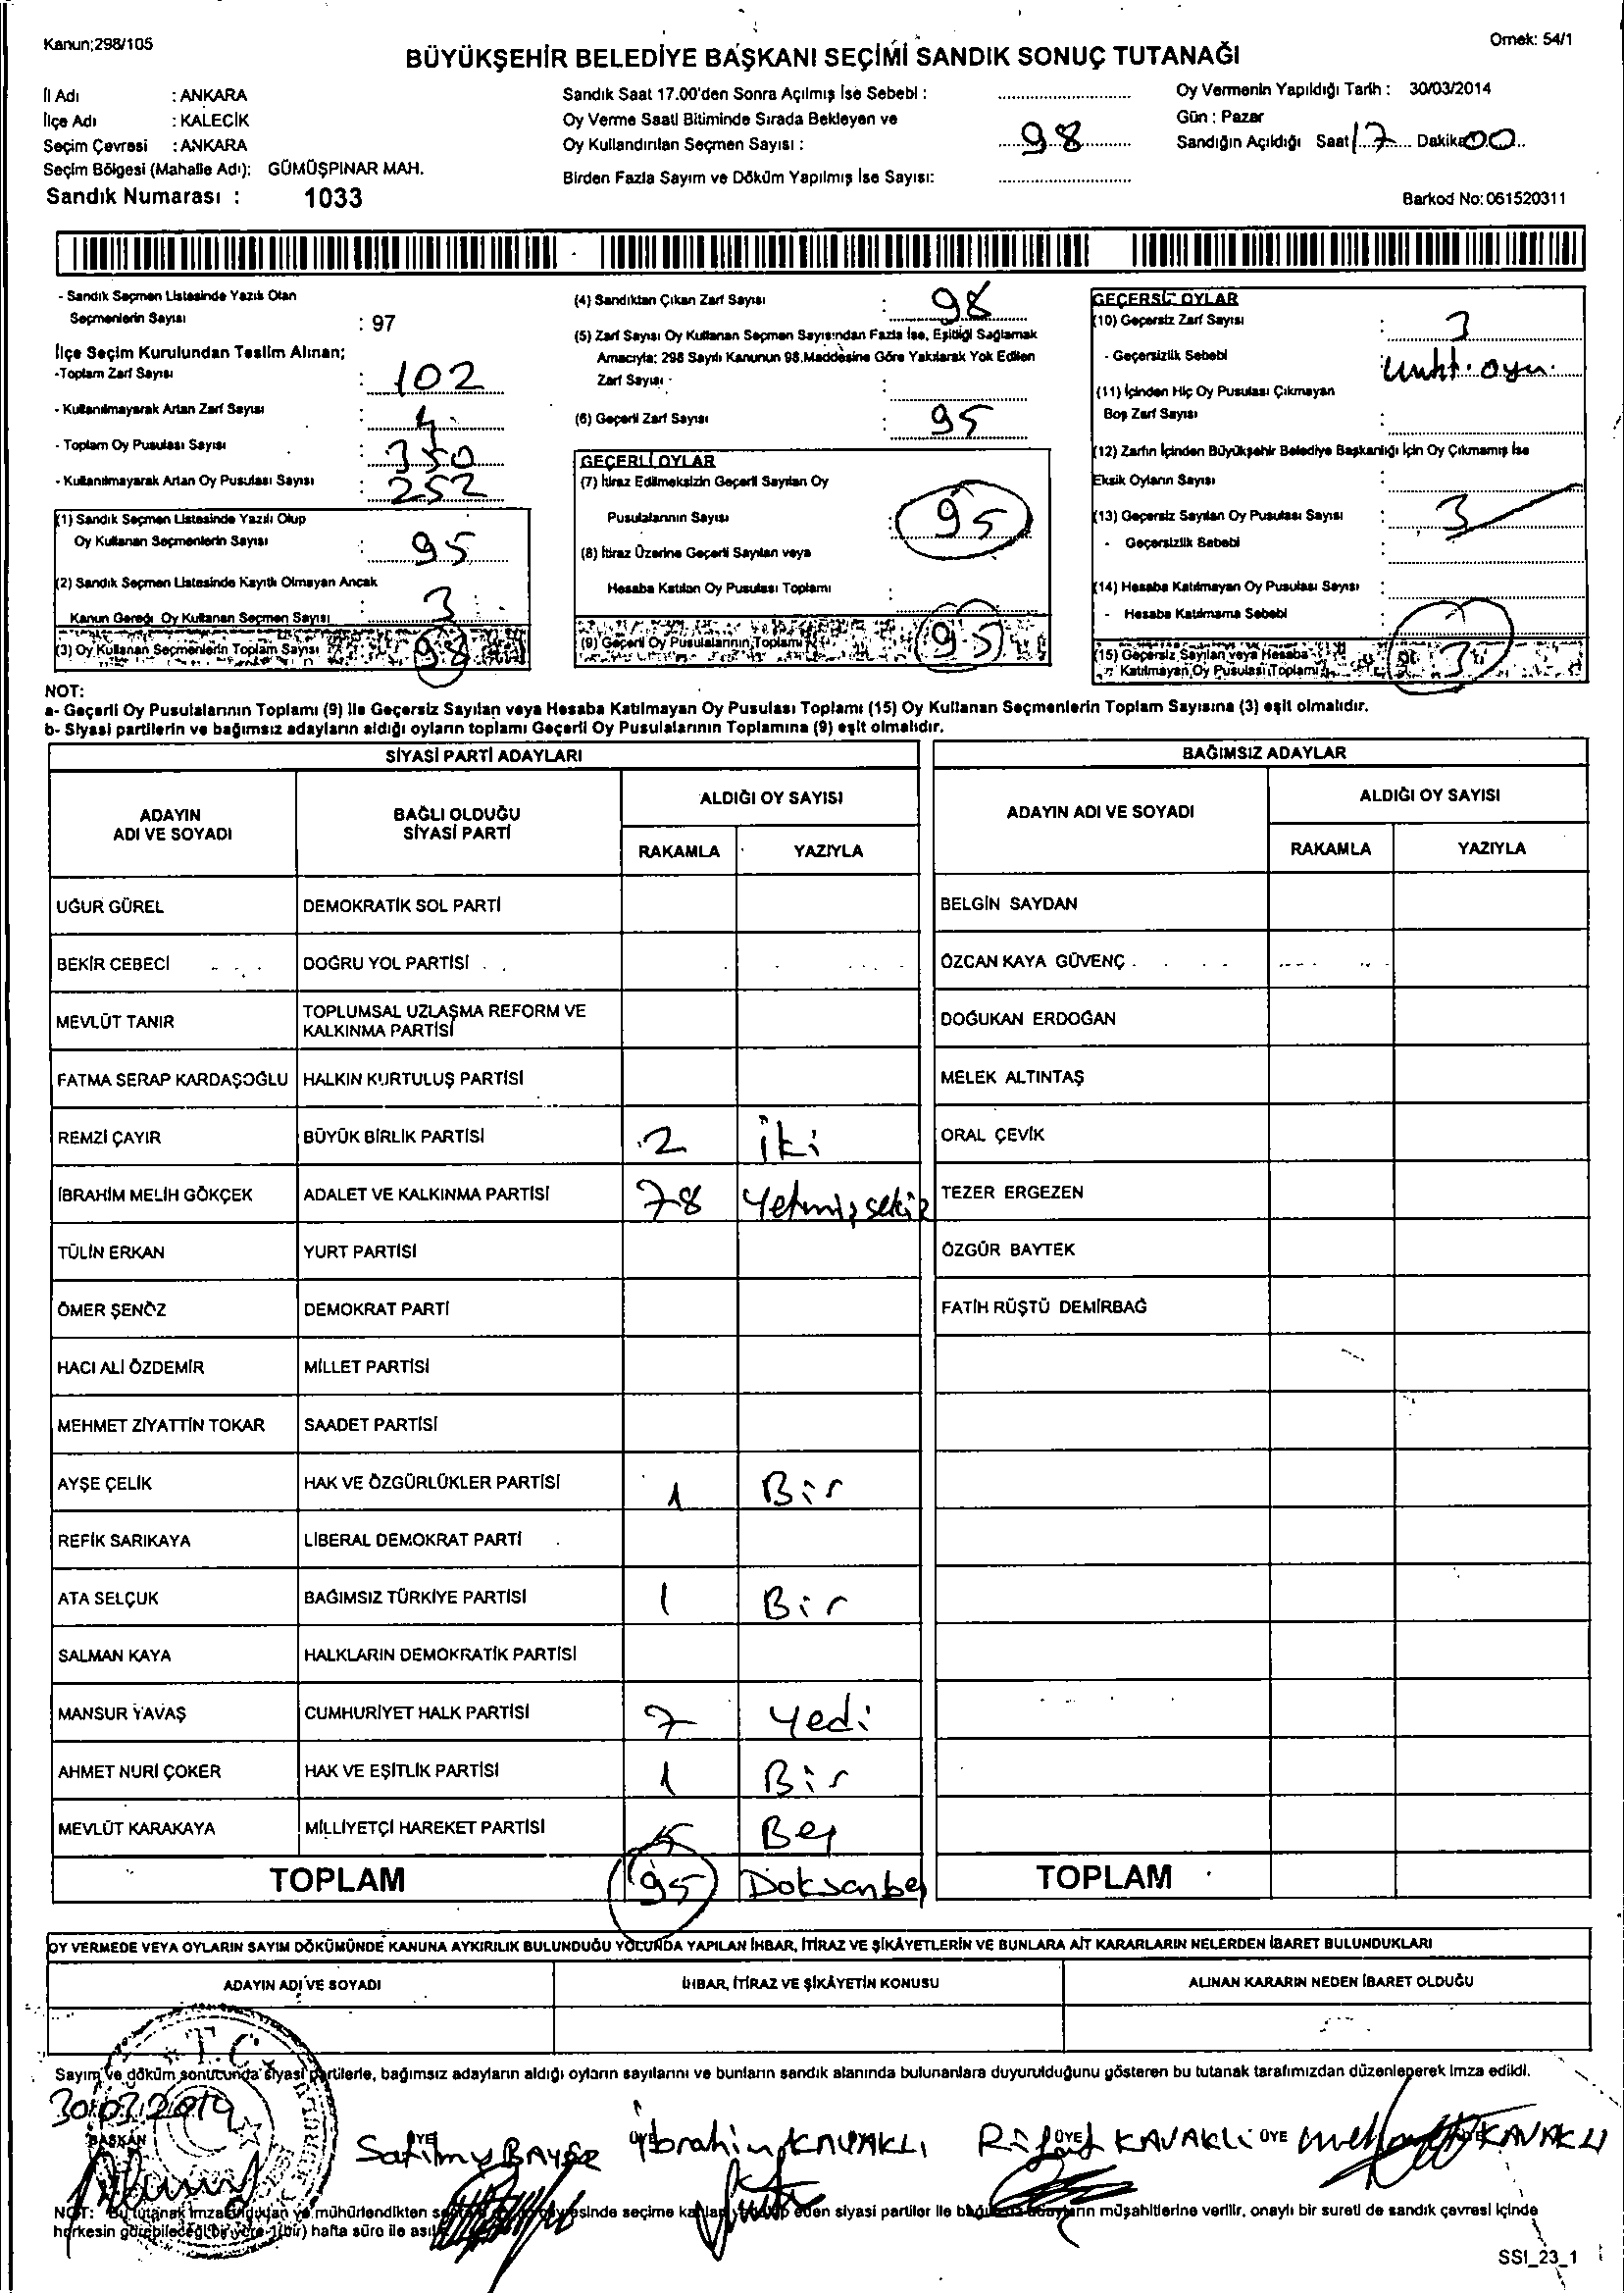 Kanun;298/105
Ornek: 54/1
BÜYÜKŞEHİR BELEDİYE BAŞKANI SEÇİMİ SANDIK SONUÇ TUTANAĞI
İl Adı : ANKARA
İlçe Adı : KALECİK
Seçim Çevresi : ANKARA
Seçim Bölgesi (Mahalle Adı): GÜMÜŞPINAR MAH.
Sandık Numarası : 1033
Sandık Saat 17.00'den Sonra Açılmış İse Sebebi :
Oy Verme Saati Bitiminde Sırada Bekleyen ve
Oy Kullandırılan Seçmen Sayısı : 98
Birden Fazla Sayım ve Döküm Yapılmış İse Sayısı:
Oy Vermenin Yapıldığı Tarih : 30/03/2014
Gün : Pazar
Sandığın Açıldığı Saat 17 Dakika 00
Barkod No: 061520311
- Sandık Seçmen Listesinde Yazılı Olan
Seçmenlerin Sayısı : 97
İlçe Seçim Kurulundan Teslim Alınan;
-Toplam Zarf Sayısı : 102
- Kullanılmayarak Artan Zarf Sayısı : 4
- Toplam Oy Pusulası Sayısı : 350
- Kullanılmayarak Artan Oy Pusulası Sayısı : 252
(1) Sandık Seçmen Listesinde Yazılı Olup
Oy Kullanan Seçmenlerin Sayısı : 95
(2) Sandık Seçmen Listesinde Kayıtlı Olmayan Ancak
Kanun Gereği Oy Kullanan Seçmen Sayısı : 3
(3) Oy Kullanan Seçmenlerin Toplam Sayısı 98
(4) Sandıktan Çıkan Zarf Sayısı : 98
(5) Zarf Sayısı Oy Kullanan Seçmen Sayısından Fazla İse, Eşitliği Sağlamak
Amacıyla; 298 Sayılı Kanunun 98.Maddesine Göre Yakılarak Yok Edilen
Zarf Sayısı :
(6) Geçerli Zarf Sayısı : 95
GEÇERLİ OYLAR
(7) İtiraz Edilmeksizin Geçerli Sayılan Oy
Pusulalarının Sayısı : 95
(8) İtiraz Üzerine Geçerli Sayılan veya
Hesaba Katılan Oy Pusulası Toplamı :
(9) Geçerli Oy Pusulalarının Toplamı 95
GEÇERSİZ OYLAR
(10) Geçersiz Zarf Sayısı : 3
- Geçersizlik Sebebi : muht. oyu.
(11) İçinden Hiç Oy Pusulası Çıkmayan
Boş Zarf Sayısı :
(12) Zarfın İçinden Büyükşehir Belediye Başkanlığı İçin Oy Çıkmamış İse
Eksik Oyların Sayısı :
(13) Geçersiz Sayılan Oy Pusulası Sayısı : 3
- Geçersizlik Sebebi :
(14) Hesaba Katılmayan Oy Pusulası Sayısı :
- Hesaba Katılmama Sebebi :
(15) Geçersiz Sayılan veya Hesaba
Katılmayan Oy Pusulası Toplamı 3
NOT:
a- Geçerli Oy Pusulalarının Toplamı (9) ile Geçersiz Sayılan veya Hesaba Katılmayan Oy Pusulası Toplamı (15) Oy Kullanan Seçmenlerin Toplam Sayısına (3) eşit olmalıdır.
b- Siyasi partilerin ve bağımsız adayların aldığı oyların toplamı Geçerli Oy Pusulalarının Toplamına (9) eşit olmalıdır.
SİYASİ PARTİ ADAYLARI
ADAYIN ADI VE SOYADI
BAĞLI OLDUĞU SİYASİ PARTİ
ALDIĞI OY SAYISI
RAKAMLA YAZIYLA
UĞUR GÜREL DEMOKRATİK SOL PARTİ
BEKİR CEBECİ DOĞRU YOL PARTİSİ
MEVLÜT TANIR TOPLUMSAL UZLAŞMA REFORM VE KALKINMA PARTİSİ
FATMA SERAP KARDAŞOĞLU HALKIN KURTULUŞ PARTİSİ
REMZİ ÇAYIR BÜYÜK BİRLİK PARTİSİ 2 iki
İBRAHİM MELİH GÖKÇEK ADALET VE KALKINMA PARTİSİ 78 Yetmiş sekiz
TÜLİN ERKAN YURT PARTİSİ
ÖMER ŞENÖZ DEMOKRAT PARTİ
HACI ALİ ÖZDEMİR MİLLET PARTİSİ
MEHMET ZİYATTİN TOKAR SAADET PARTİSİ
AYŞE ÇELİK HAK VE ÖZGÜRLÜKLER PARTİSİ 1 Bir
REFİK SARIKAYA LİBERAL DEMOKRAT PARTİ
ATA SELÇUK BAĞIMSIZ TÜRKİYE PARTİSİ 1 Bir
SALMAN KAYA HALKLARIN DEMOKRATİK PARTİSİ
MANSUR YAVAŞ CUMHURİYET HALK PARTİSİ 7 Yedi
AHMET NURİ ÇOKER HAK VE EŞİTLİK PARTİSİ 1 Bir
MEVLÜT KARAKAYA MİLLİYETÇİ HAREKET PARTİSİ 5 Beş
TOPLAM 95 Doksanbeş
BAĞIMSIZ ADAYLAR
ADAYIN ADI VE SOYADI
ALDIĞI OY SAYISI
RAKAMLA YAZIYLA
BELGİN SAYDAN
ÖZCAN KAYA GÜVENÇ
DOĞUKAN ERDOĞAN
MELEK ALTINTAŞ
ORAL ÇEVİK
TEZER ERGEZEN
ÖZGÜR BAYTEK
FATİH RÜŞTÜ DEMİRBAĞ
TOPLAM
OY VERMEDE VEYA OYLARIN SAYIM DÖKÜMÜNDE KANUNA AYKIRILIK BULUNDUĞU YOLUNDA YAPILAN İHBAR, İTİRAZ VE ŞİKÂYETLERİN VE BUNLARA AİT KARARLARIN NELERDEN İBARET BULUNDUKLARI
ADAYIN ADI VE SOYADI
İHBAR, İTİRAZ VE ŞİKÂYETİN KONUSU
ALINAN KARARIN NEDEN İBARET OLDUĞU
T.C.
Sayım ve döküm sonucunda siyasi partilerle, bağımsız adayların aldığı oyların sayılarını ve bunların sandık alanında bulunanlara duyurulduğunu gösteren bu tutanak tarafımızdan düzenlenerek imza edildi.
30.03.2014
BAŞKAN
ÜYE ÜYE İbrahim KAVAKLI ÜYE KAVAKLI ÜYE KAVAKLI
NOT: Bu tutanak imzalandıktan ve mühürlendikten seçime katılan eden siyasi partiler ile müşahitlerine verilir, onaylı bir sureti de sandık çevresi içinde
herkesin görebileceği bir yere 1(bir) hafta süre ile
SSI_23_1